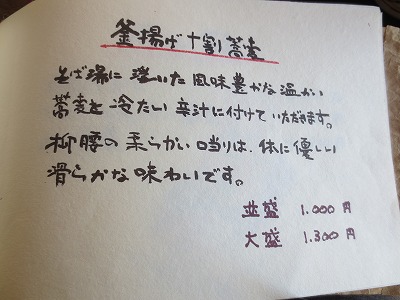 釜揚げ十割蕎麦
そば湯に浸いた風味豊かな温かい
蕎麦を冷たい辛汁に付けていただきます。
柳腰の柔らかい口当りは、体に優しい
滑らかな味わいです。
並盛 1.000円
大盛 1.300円